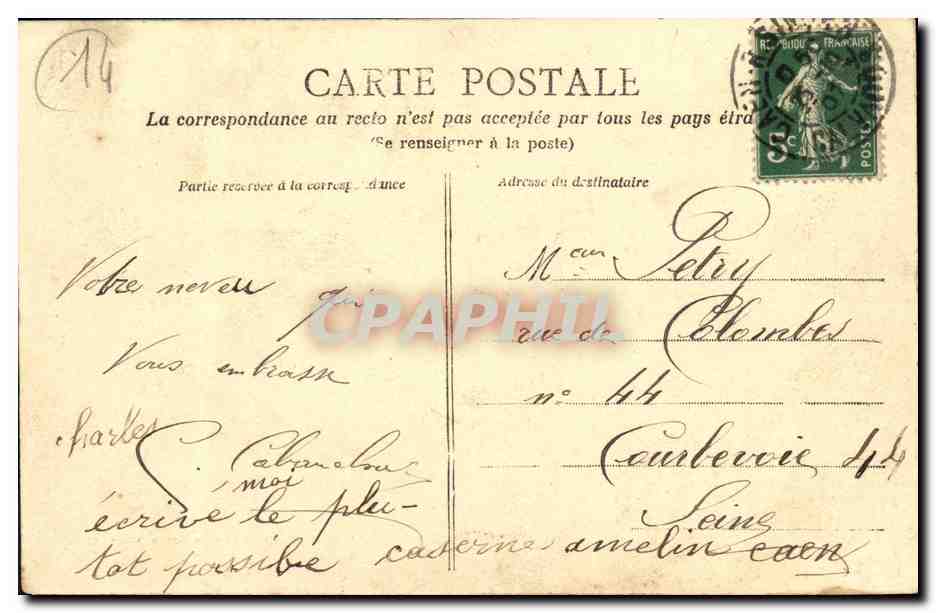 14
CARTE POSTALE
La correspondance au recto n'est pas acceptée par tous les pays étra
(Se renseigner à la poste)
REPUBLIQUE FRANÇAISE
5c
POSTES
CALVADOS
Partie réservée à la correspondance
Adresse du destinataire
Votre neveu qui
Vous embrasse
Charles
C.
moi
écrive le plu-
tot possible caserne amelin caen
Meur Petry
rue de Colombes
n° 44
Courbevoie 44
Seine
CPAPHIL